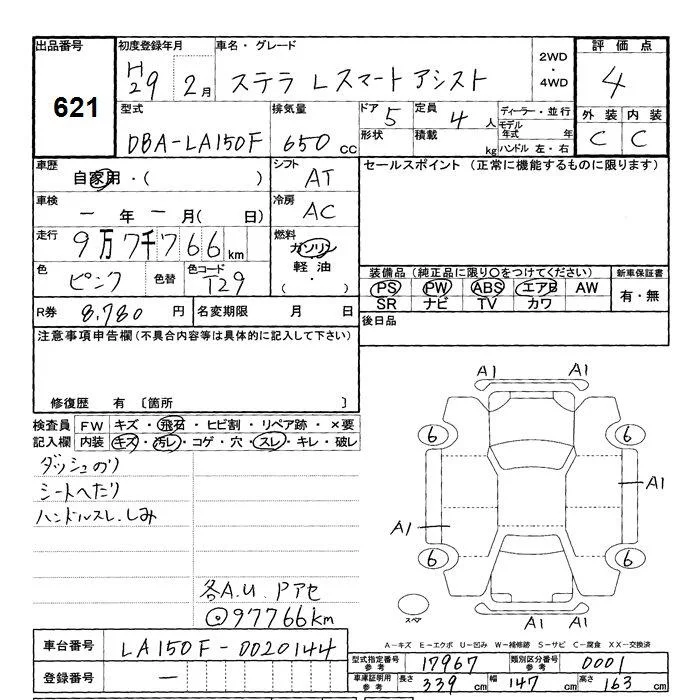 出品番号 初度登録年月 車名・グレード 2WD・4WD 評価点
621 H29 2月 ステラ Lスマートアシスト 4
型式 排気量 ドア 定員 ディーラー・並行 外装 内装
DBA-LA150F 650cc 5 4人 モデル年式 年 C C
形状 積載 kg ハンドル 左・右
車歴 シフト セールスポイント (正常に機能するものに限ります)
自家用・( ) AT
車検 冷房
一年一月( 日) AC
走行 燃料
9万7千766km ガソリン
軽油
・
( )
色 色替 色コード
ピンク T29
装備品 (純正品に限り○をつけてください) 新車保証書
PS PW ABS エアB AW 有・無
SR ナビ TV カワ
R券 8,780円 名変期限 月 日 後日品
注意事項申告欄(不具合内容等は具体的に記入して下さい)
修復歴 有 〔箇所 〕
検査員 FW キズ・飛石・ヒビ割・リペア跡・×要
記入欄 内装 キズ・汚レ・コゲ・穴・スレ・キレ・破レ
ダッシュのり
シートへたり
ハンドルスレ.しみ
各A.U. Pアセ
97766km
A1 A1
6 6
A1
A1
6 6
A1 A1
スペア
A-キズ E-エクボ U-凹み W-補修跡 S-サビ C-腐食 XX-交換済
車台番号 LA150F-0020144
型式指定番号 参考 17967 類別区分番号 参考 0001
登録番号 一
車庫証明用 参考 長さ 339cm 幅 147cm 高さ 163cm